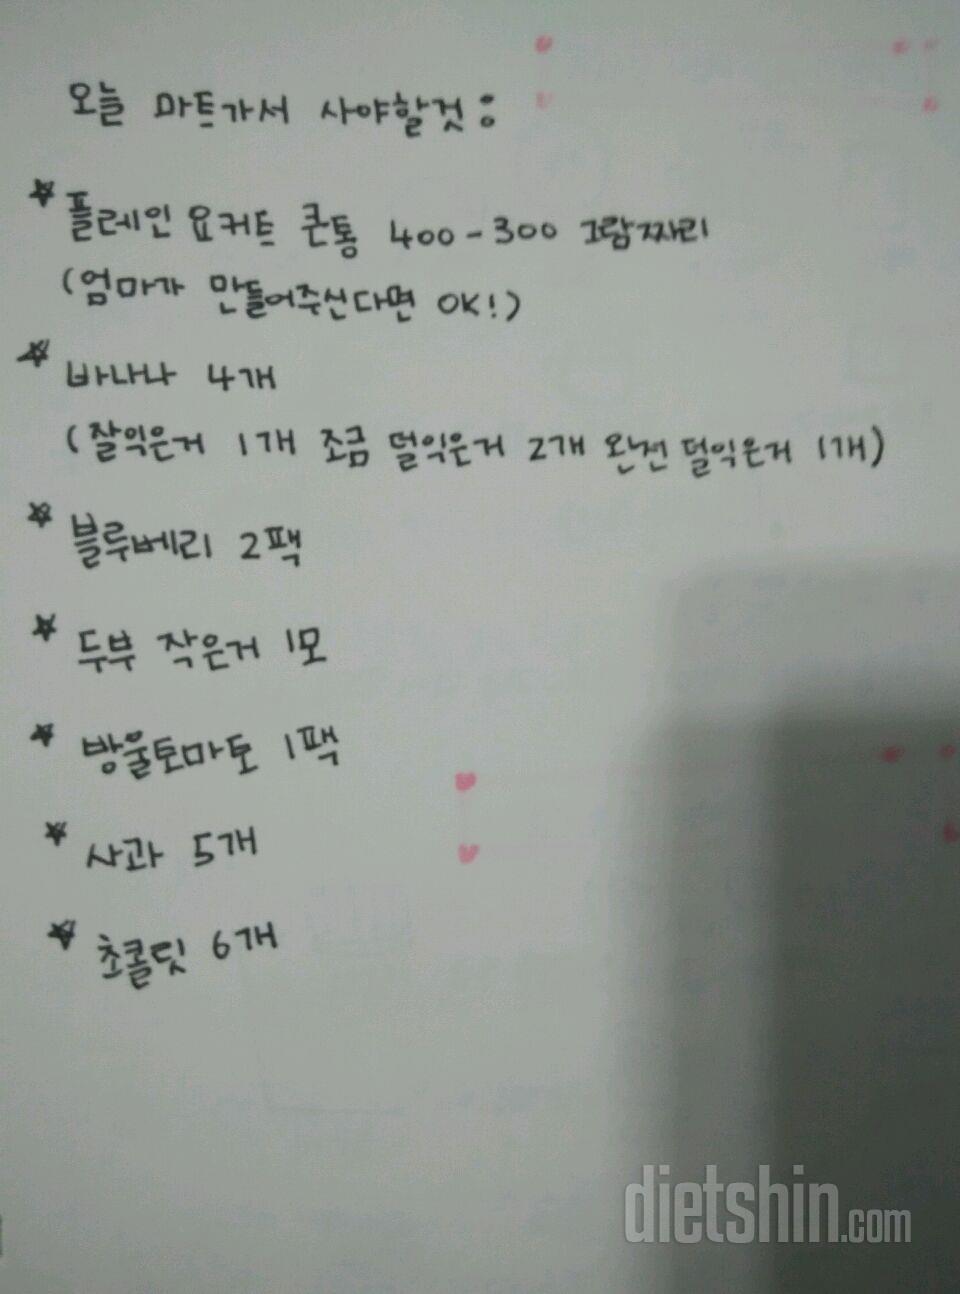 오늘 마트가서 사야할것 :
☆ 플레인 요커트 큰통 400-300 그람짜리
(엄마가 만들어주신다면 OK!)
☆ 바나나 4개
(잘익은거 1개 조금 덜익은거 2개 완전 덜익은거 1개)
☆ 블루베리 2팩
☆ 두부 작은거 1모
☆ 방울토마토 1팩
☆ 사과 5개
☆ 초콜릿 6개
dietshin.com